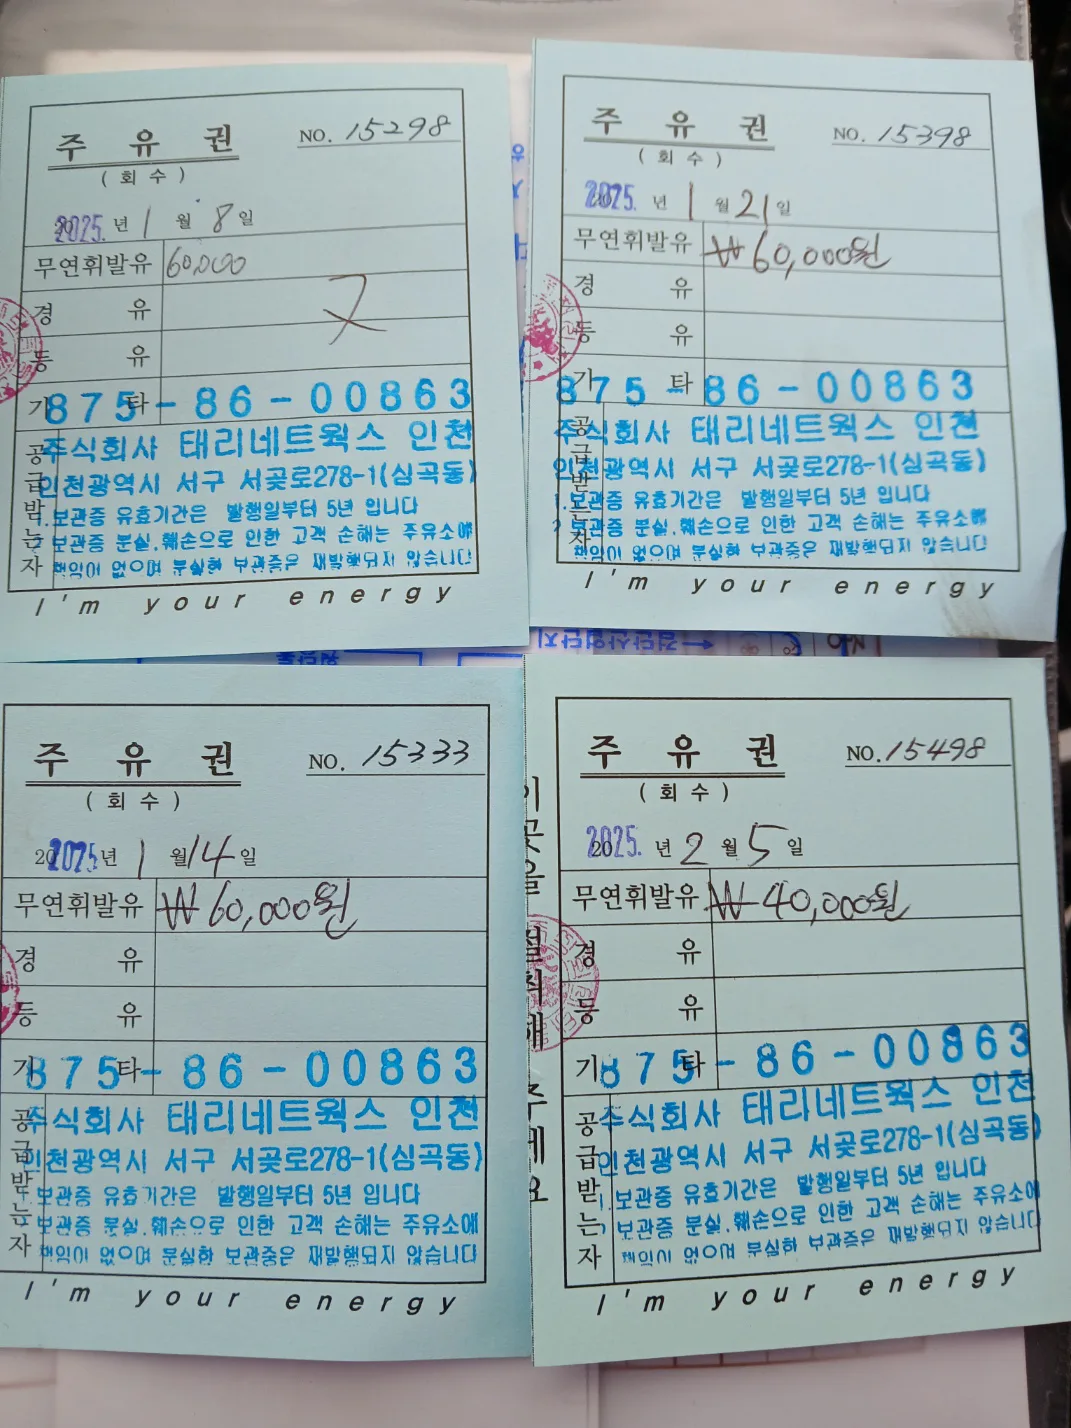 주 유 권
NO. 15298
(회 수)
2025. 년 1 월 8 일
무연휘발유 60,000
경 유
등 유
기 타
875-86-00863
주식회사 태리네트웍스 인천
인천광역시 서구 서곶로278-1(심곡동)
1. 보관증 유효기간은 발행일부터 5년 입니다
2 보관증 분실, 훼손으로 인한 고객 손해는 주유소에
책임이 없으며 분실한 보관증은 재발행되지 않습니다
공급받는자
I'm your energy
주 유 권
NO. 15398
(회 수)
2025. 년 1 월 21 일
무연휘발유 ₩60,000원
경 유
등 유
기 타
875-86-00863
주식회사 태리네트웍스 인천
인천광역시 서구 서곶로278-1(심곡동)
1. 보관증 유효기간은 발행일부터 5년 입니다
2 보관증 분실, 훼손으로 인한 고객 손해는 주유소에
책임이 없으며 분실한 보관증은 재발행되지 않습니다
공급받는자
I'm your energy
검단산업단지
주 유 권
NO. 15333
(회 수)
2025 년 1 월 14 일
무연휘발유 ₩60,000원
경 유
등 유
기 타
875-86-00863
주식회사 태리네트웍스 인천
인천광역시 서구 서곶로278-1(심곡동)
보관증 유효기간은 발행일부터 5년 입니다
보관증 분실, 훼손으로 인한 고객 손해는 주유소에
책임이 없으며 분실한 보관증은 재발행되지 않습니다
공급받는자
I'm your energy
주 유 권
NO. 15498
(회 수)
2025. 년 2 월 5 일
무연휘발유 ₩40,000원
경 유
등 유
기 타
875-86-00863
주식회사 태리네트웍스 인천
인천광역시 서구 서곶로278-1(심곡동)
1. 보관증 유효기간은 발행일부터 5년 입니다
보관증 분실, 훼손으로 인한 고객 손해는 주유소에
책임이 없으며 분실한 보관증은 재발행되지 않습니다
공급받는자
I'm your energy
이곳을 절취해 주세요